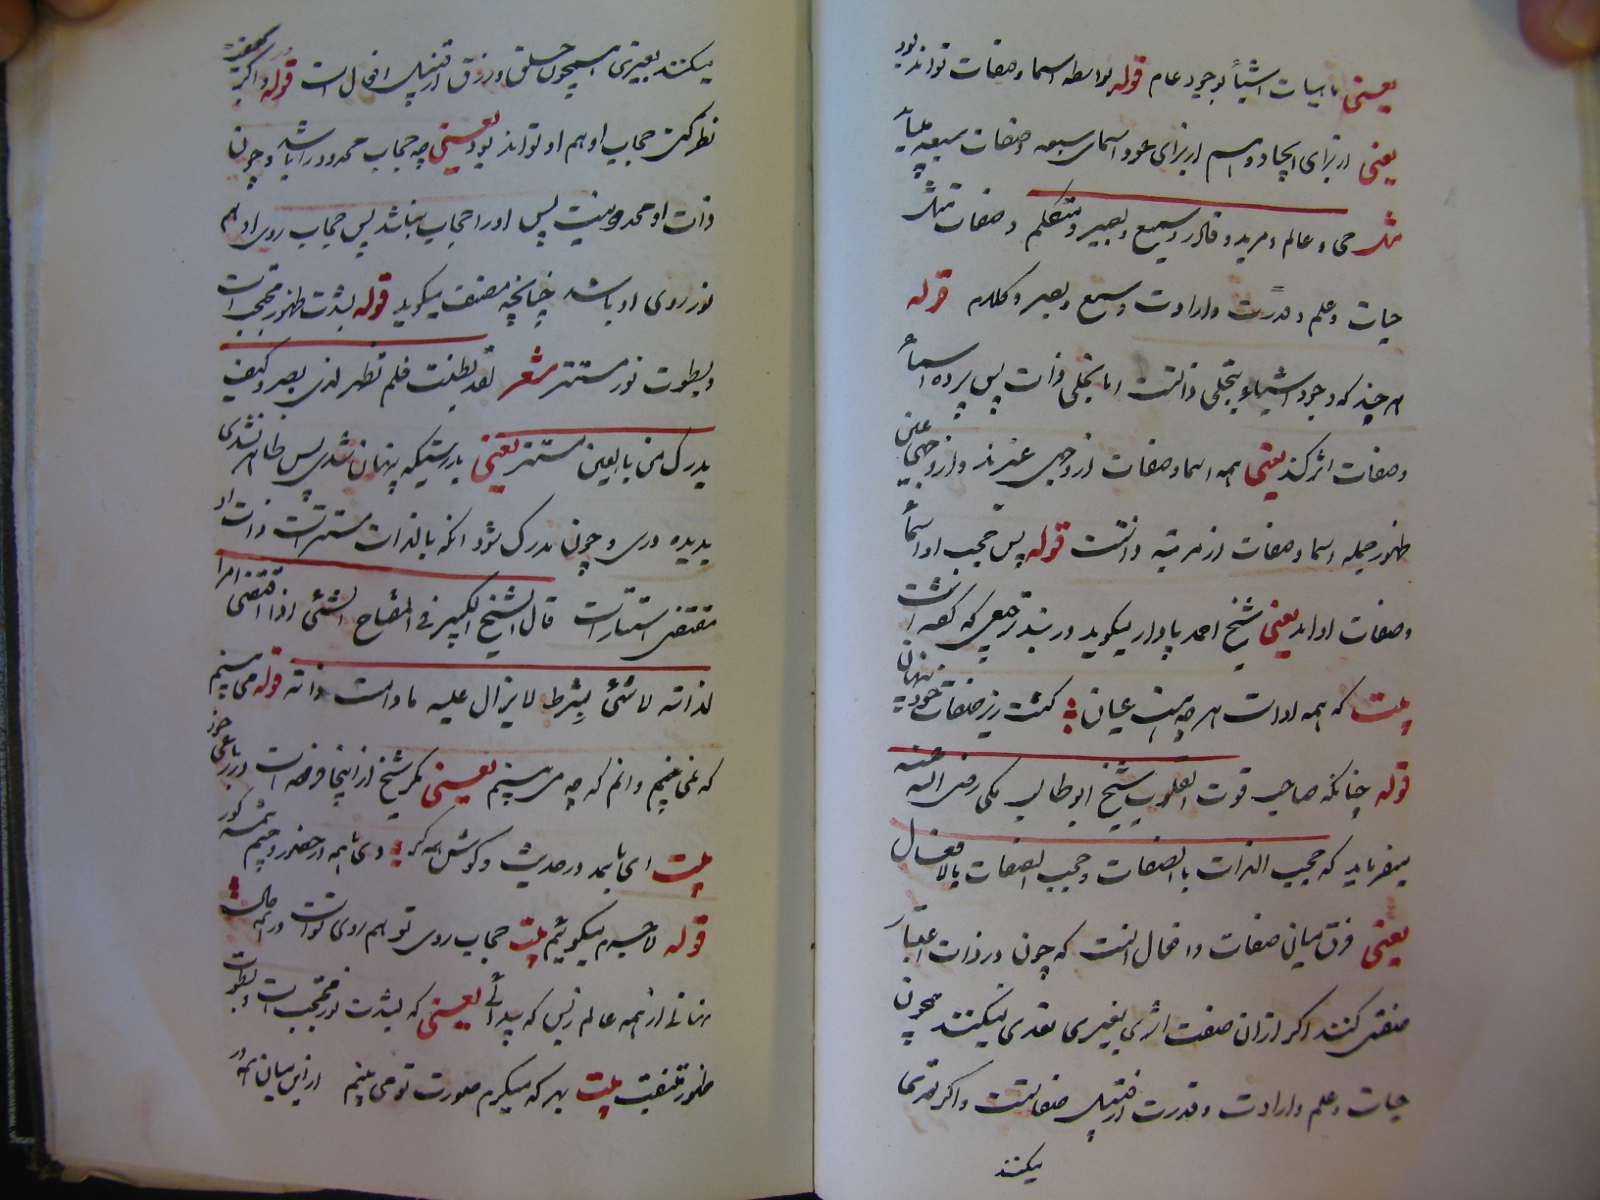 یعنی ماهیات اشیا بوجود عام قوله بواسطه اسما و صفات تواند بود
یعنی از برای ایجاد و هم از برای عود اسمای سبعه و صفات سبعه میباید
مثل حی و عالم و مرید و قادر و سمیع و بصیر و متکلم و صفات مثل
حیات و علم و قدرت و ارادت و سمع و بصر و کلام قوله
هر چند که وجود اشیا بتجلی ذاتست اما تجلی ذات پس پرده اسما
و صفات اثر کند یعنی همه اسما و صفات از وجهی غیرند و از وجهی عین
ظهور جمله اسما و صفات از مرتبه ذاتست قوله پس حجب او اسما
و صفات او اند یعنی شیخ احمد یادار میگوید در بند ترجیعی که گفته است
بیت که همه اوست هر چه هست عیان گشت زیر صفات خود پنهان
قوله چنانکه صاحب قوت القلوب شیخ ابو طالب مکی رضی الله عنه
میفرماید که حجب الذات بالصفات و حجب الصفات بالافعال
یعنی فرق میان صفات و افعال آنست که چون در ذات اعتبار
صفتی کنند اگر از ان صفت اثری بغیری تعدی نمیکنند همچون
حیات و علم و ارادت و قدرت از قبیل صفاتست و اگر تعدی
میکنند
میکنند بغیری همچون خلق و رزق از قبیل افعال است قوله و اگر بحقیقت
نظر کنی حجاب او هم او تواند بود یعنی چه حجاب محدود را باشد و چون
ذات او محدود نیست پس او را حجاب نباشد پس حجاب روی او هم
نور روی او باشد چنانچه مصنف میگوید قوله بشدت ظهور محتجب است
و بسطوت نور مستتر شعر لقد بطنت فلم تظهر لذی بصر و کیف
یدرک من بالعین مستتر یعنی بدرستیکه پنهان شدی پس ظاهر نشدی
بدیده وری و چون مدرک شود انکه بالذات مستتر است ذات او
مقتضی استتار است قال الشیخ الکبیر فی المفتاح الشئ اذا اقتضی امرا
لذاته لا شئ بشرط لا یزال علیه ما دامت ذاته قوله می بینیم
که نمی بینیم و دانم که چه می بینیم یعنی مگر شیخ از اینجا فرموده است در رباعی خود
بیت ای با همه در حدیث و گوش همه کر وی با همه در حضور و چشم همه کور
قوله لاجرم میگوئیم بیت حجاب روی تو هم روی تست در همه حال
نهانی از همه عالم ز بس که پیدائی یعنی که بشدت نور محتجب است و بسطوت
ظهور مختفیست بیت بهر که مینگرم صورت تو می بینم از این میان همه در